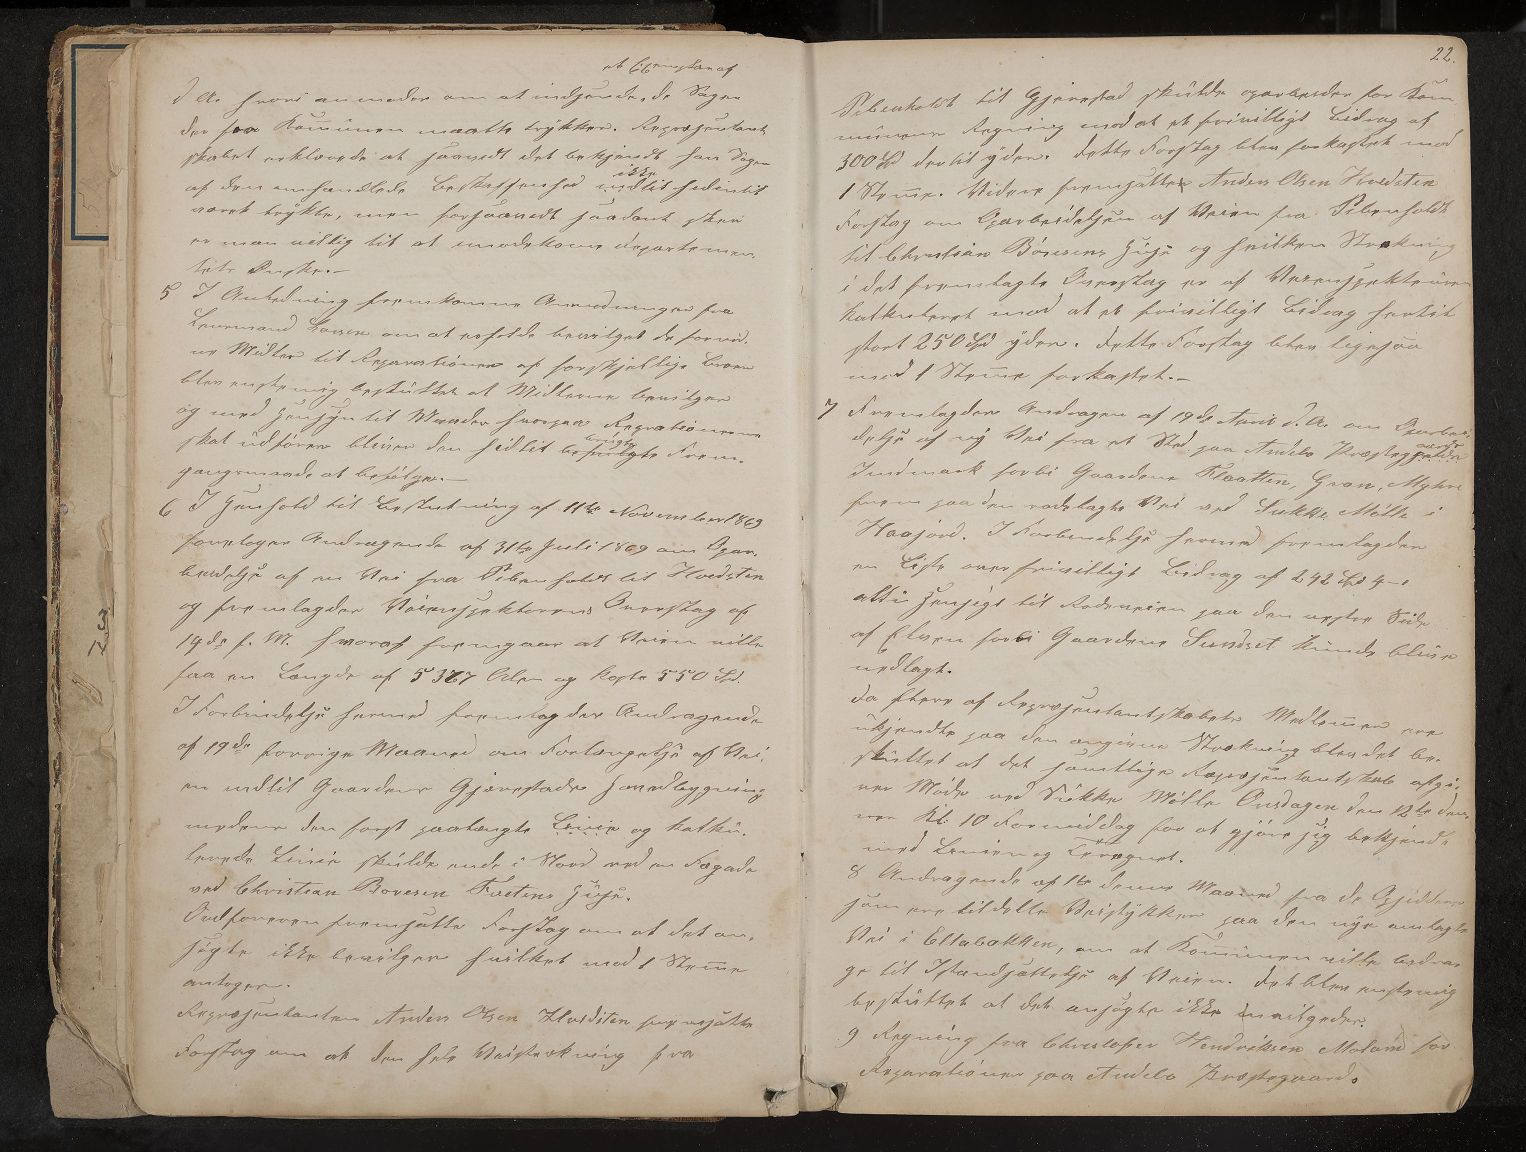 et Exemplar af
d. A. hvori anmodes om at indsende, de Sager
der fra Kommunen maatte trykkes. Repræsentant-
skabet erklærede at saavidt det bekjendt har Sager
af den omhandlede Beskaffenhed ikke indtil hidentil
været trykte, men forsaavidt saadant sker
er man villig til at imødekomme departemen-
tets Ønske.-
5 I Anledning fremkomne Anmodninger fra
Lensmand Larsen om at erholde bevilget de fornød-
ne Midler til Reparationer af forskjellige Broer
blev enstemmig besluttet at Midlerne bevilges
og med Hensyn til Maaden hvorpaa Reparationerne
skal udføres bliver den hidtil brugte Frem-
gangsmaade at befølge.-
6 I Henhold til Beslutning af 11te November 1869
foretoges Andragende af 31te Juli 1869 om Opar-
beidelse af en Vei fra Pibenholdt til Hvedsten
og fremlagdes Veiinspektørens Overslag af
14de f. M. hvoraf fremgaar at Veien ville
faa en Længde af 5367 Alen og koste 550 Spd.
I Forbindelse hermed fremlagdes Andragende
af 19de forrige Maaned om Forlængelse af Vei-
en indtil Gaarden Gjerestads Hovedbygning
medens den først paatænkte Linie og kalku-
lerede Linie skulde ende i Nord ved en Fægade
ved Christian Bovesen Hus.
Ordføreren fremsatte Forslag om at det an-
søgte ikke bevilges hvilket mod 1 Stemme
antoges.
Repræsentanten Anders Olsen Hvedsten fremsatte
Forslag om at den hele Veistrækning fra
22.
Pibenholdt til Gjerestad skulde oparbeides for Kom-
munens Regning mod at et frivilligt Bidrag af
300 Spd dertil ydes. Dette Forslag blev forkastet mod
1 Stemme. Videre fremsattes Anders Olsen Hvedsten
Forslag om Oparbeidelsen af Veien fra Pibenholdt
til Christian Bovesens Huse og hvilken Strækning
i det fremlagte Overslag er af Veiinspektøren
kalkuleret mod at et frivilligt Bidrag hertil
stort 250 Spd ydes. Dette Forslag blev ligesaa
mod 1 Stemme forkastet.-
7 Fremlagdes Andragen af 19de April d. A. om Oparbei-
delse af ny Vei fra et Sted paa Andebo Præstegaards
Indmark forbi Gaardene Flaatten, Gran, Myhre
frem paa den rodelagte Vei ved Sukke Mølle i
Haasjord. I Forbindelse hermed fremlagdes
en Liste over frivilligt Bidrag af 242 Spd 4-
alt i Henseigt til Rodeveien paa den vestre Side
af Elven forbi Gaardene Sundset kunde blive
nedlagt.
Da flere af Repræsentantskabets Medlemmer ere
ukjendte paa den angivne Strækning blev det be-
sluttet at det samtlige Repræsentantskab afgi-
ver Møde ved Sukke Mølle Onsdagen den 12te den-
nes Kl: 10 Formiddag for at gjøre sig bekjendt
med Linien og Terrægnet.
8 Andragende af 1te denne Maaned fra de Gjidder
som ere tildelte Veistykker paa den nye omlagte
Vei i Ellabakken, om at Kommunen ville bidra-
ge til Istandsættelse af Veien. Det blev enstemmig
besluttet at det ansøgte ikke bevilgedes.
9 Regning fra Christofer Hendriksen Moland for
Reparationer paa Andebo Præstegaard.